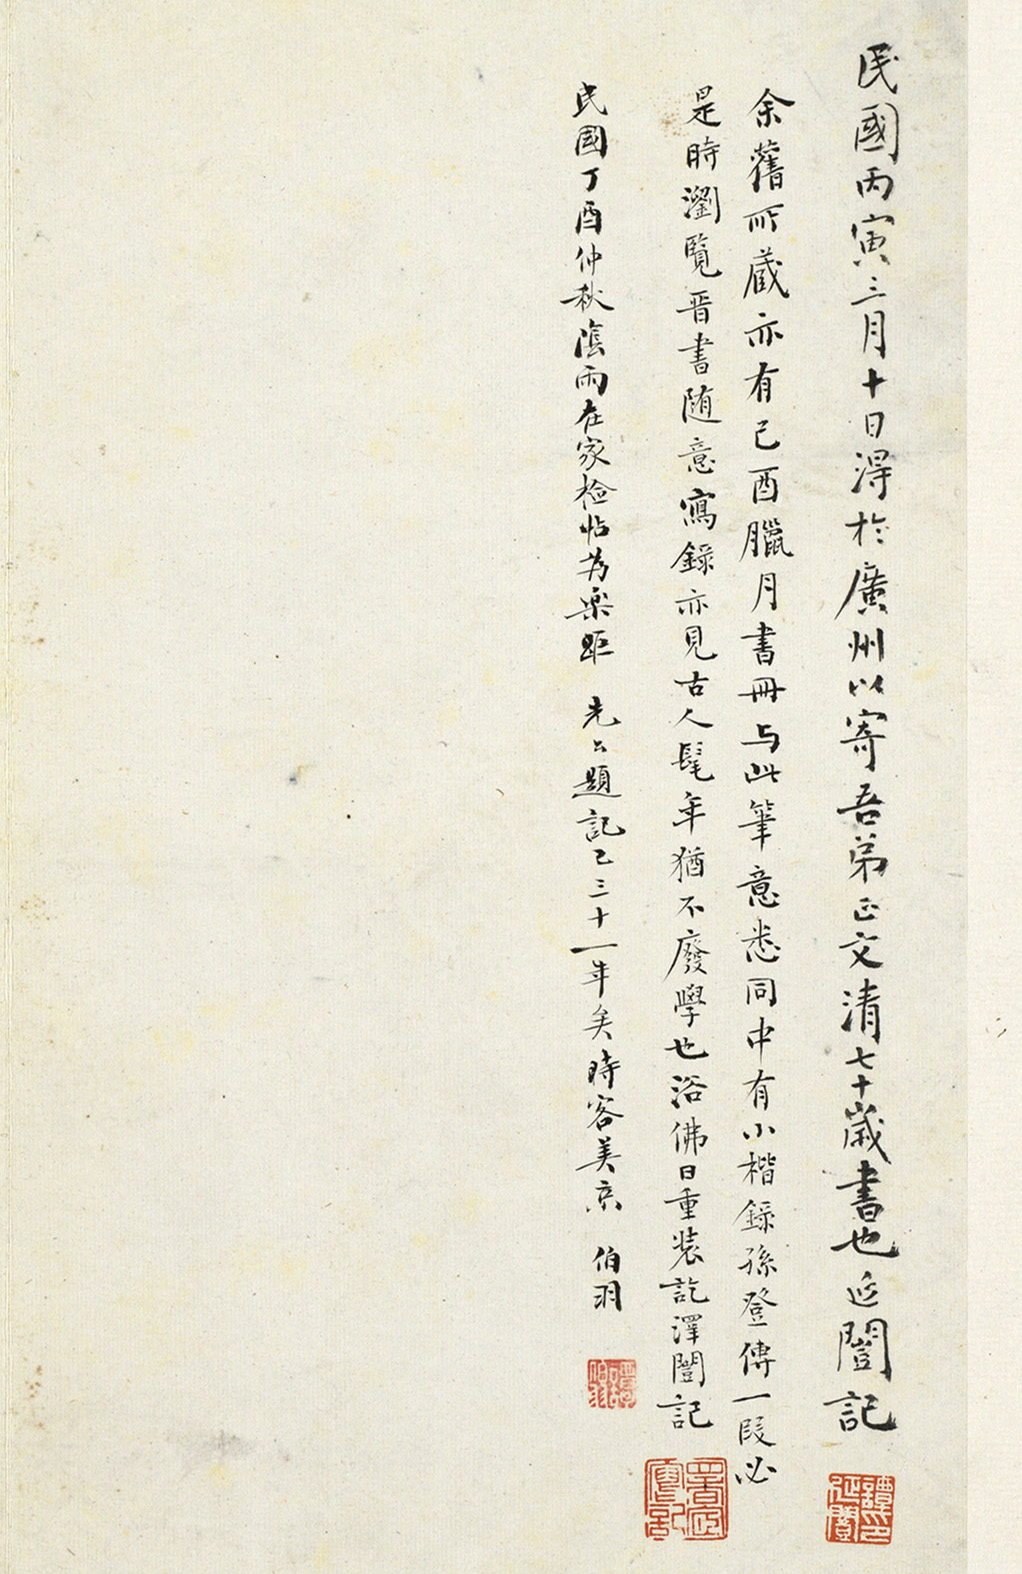 民國丙寅三月十日得於廣州以寄吾弟正文清七十歲書也延闓記
余舊所藏亦有己酉臘月書冊与此筆意悉同中有小楷錄孫登傳一段必
是時瀏覽晉書随意寫錄亦見古人髦年猶不廢學也浴佛日重裝訖澤闓記
民國丁酉仲秋陰雨在家檢帖为樂距 先公題記已三十一年矣時客美京 伯羽
譚延闓印